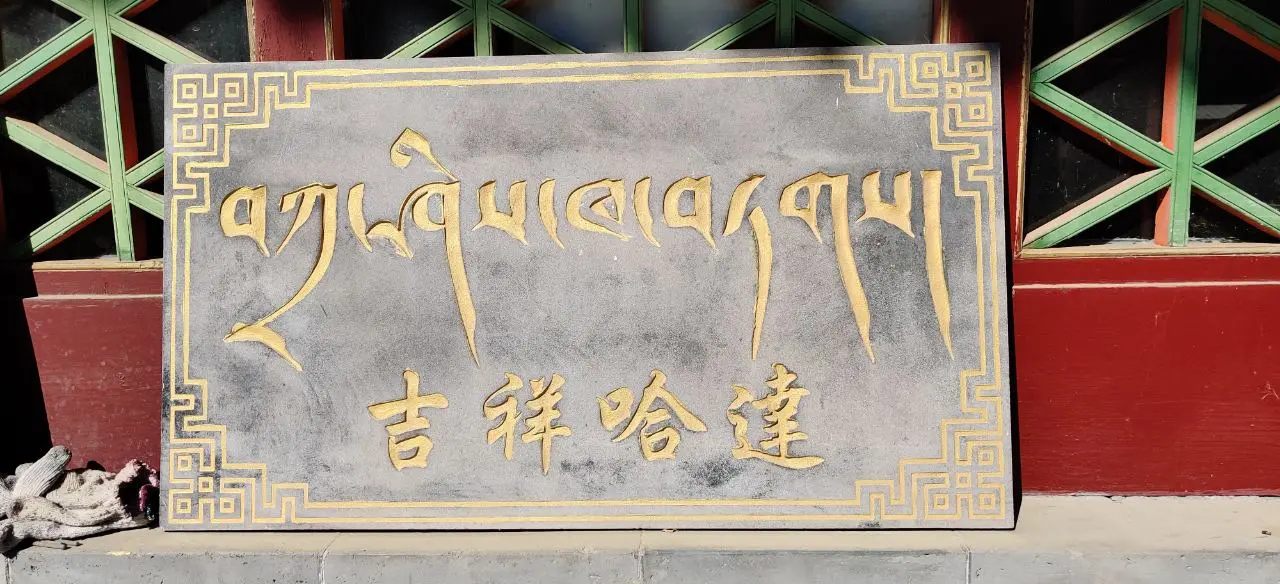 བཀྲ་ཤིས་ཁ་བཏགས།
吉祥哈達